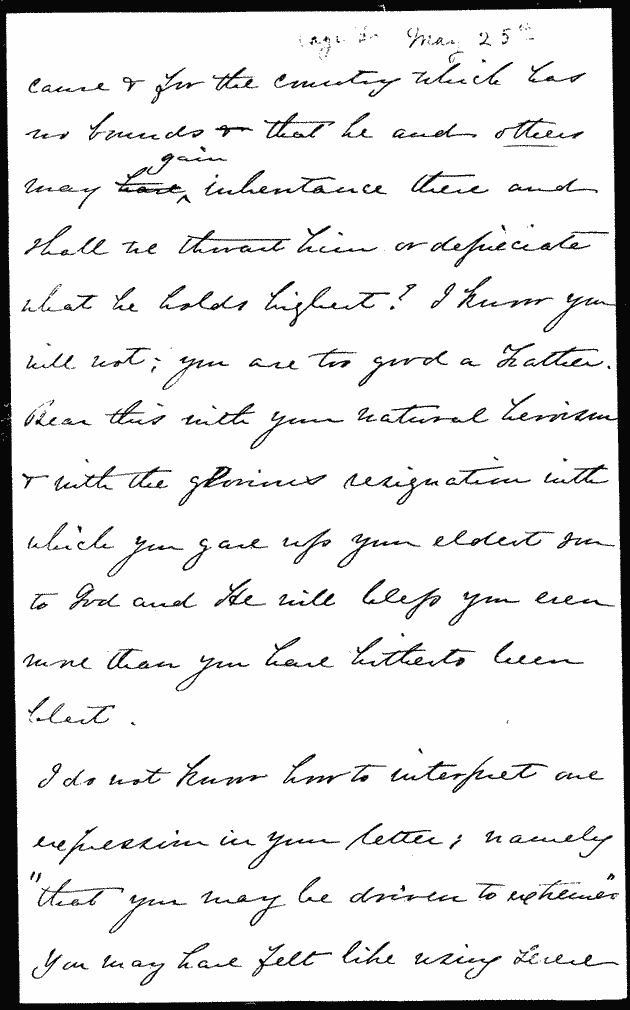 May 25th
cause & for the country which has
no bounds & that he and others
gain
may have inheritance there and
shall we thwart him or depreciate
what he holds highest? I know you
will not; you are too good a Father.
Bear this with your natural heroism
& with the glorious resignation with
which you gave up your eldest son
to God and He will bless you even
more than you have hitherto been
blest.
I do not know how to interpret one
expression in your letter; namely
"that you may be driven to extremes"
You may have felt like using severe